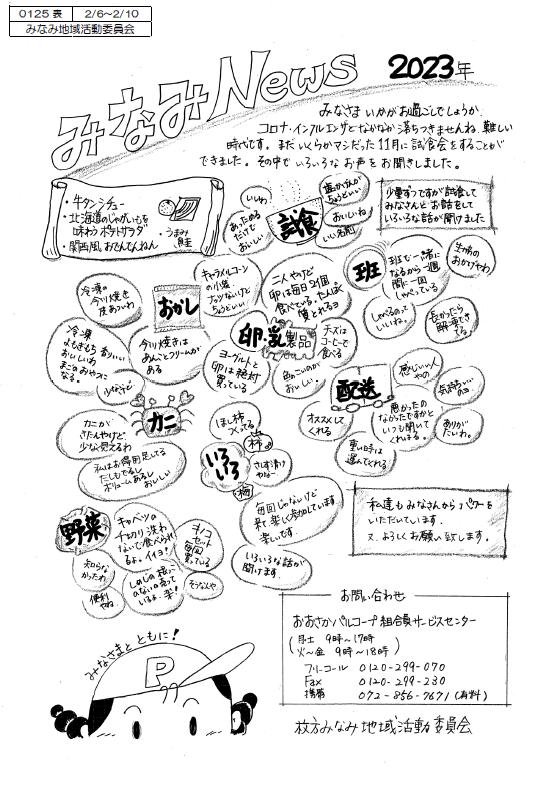 0125 表
2/6～2/10
みなみ地域活動委員会
みなみNews
2023年
みなさま いかがお過ごしでしょうか.
コロナ・インフルエンザとなかなか落ちつきませんね。難しい
時代です。まだいくらかマシだった11月に試食会をすることが
できました。その中でいろいろなお声をお聞きしました。
・牛タンシチュー
・北海道のじゃがいもを
味わうポテトサラダ
・関西風おでんてんねん
・うまみ鮭
いいわ
あっためる
だけで
おいしい
試食
塩かげんが
ちょうどいい
おいしいね
いい名前
少量ずつですが試食して
みなさんとお話をして
いろいろな話が聞けました
班
班で一緒に
なるから一週
間に一回
しゃべっている
生協の
おかげやわ
しゃべるのって
いいね。
おかし
冷凍の
今川焼き
皮あついわ
キャラメルコーン
の小袋
ナッツないけど
ちょうどいい
冷凍
よもぎもち 香りいい
おいしいわ
まごのおやつに
なる。
今川焼きは
あんことクリームが
ある
少なくて
卵・乳製品
二人やけど
卵は毎日2個
食べている。たんぱく
質とれるヨ
ヨーグルトと
卵は絶対
買っている
チーズは
コーヒーで
食べる
配送
感じいい人
やの
気持ちいい
のヨ
オススメして
くれる
重い時は
運んでくれる
ありが
たいわ。
カニ
カニが
きたんやけど、
少なく見えるわ
私はお得用足してる
だしもでるし
ボリュームあるし
おいしい
いろいろ
ほし柿
つくってる
柿
さしす漬け
やな〜
梅
毎回じゃないけど
来て楽しく参加しています
楽しいです。
いろいろな話が
聞けます.
野菜
キャベツの
千切り洗わ
ないで食べられ
るよ。イイヨ!
キノコ
セット
毎回
買っている
知らな
かったわ
便利
やね.
しめじの根に
ないの売って
いるよ.楽!
そうなんや
私達もみなさんからパワーを
いただいています.
又、よろしくお願い致します.
お問い合わせ
おおさかパルコープ 組合員サービスセンター
(月土 9時〜17時
火〜金 9時〜18時)
フリーコール 0120-299-070
Fax 0120-299-230
携帯 072-856-7671 (有料)
みなさまとともに!
P
枚方みなみ地域活動委員会